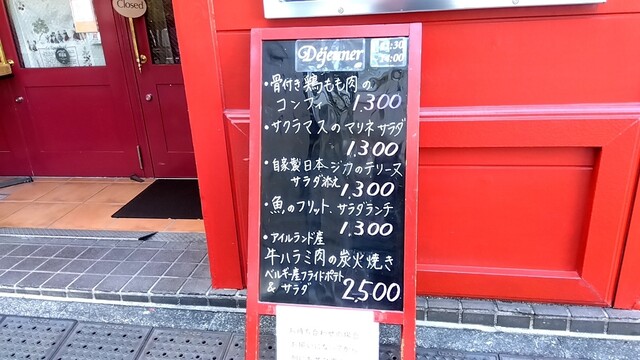 Closed
Déjeuner
・骨付き鶏もも肉の
コンフィ 1,300
・サクラマスのマリネサラダ
1,300
・自家製日本ジカのテリーヌ
サラダ添え 1,300
・魚のフリット、サラダランチ
1,300
・アイルランド産
牛ハラミ肉の炭火焼き
ベルギー産フライドポテト
& サラダ 2,500